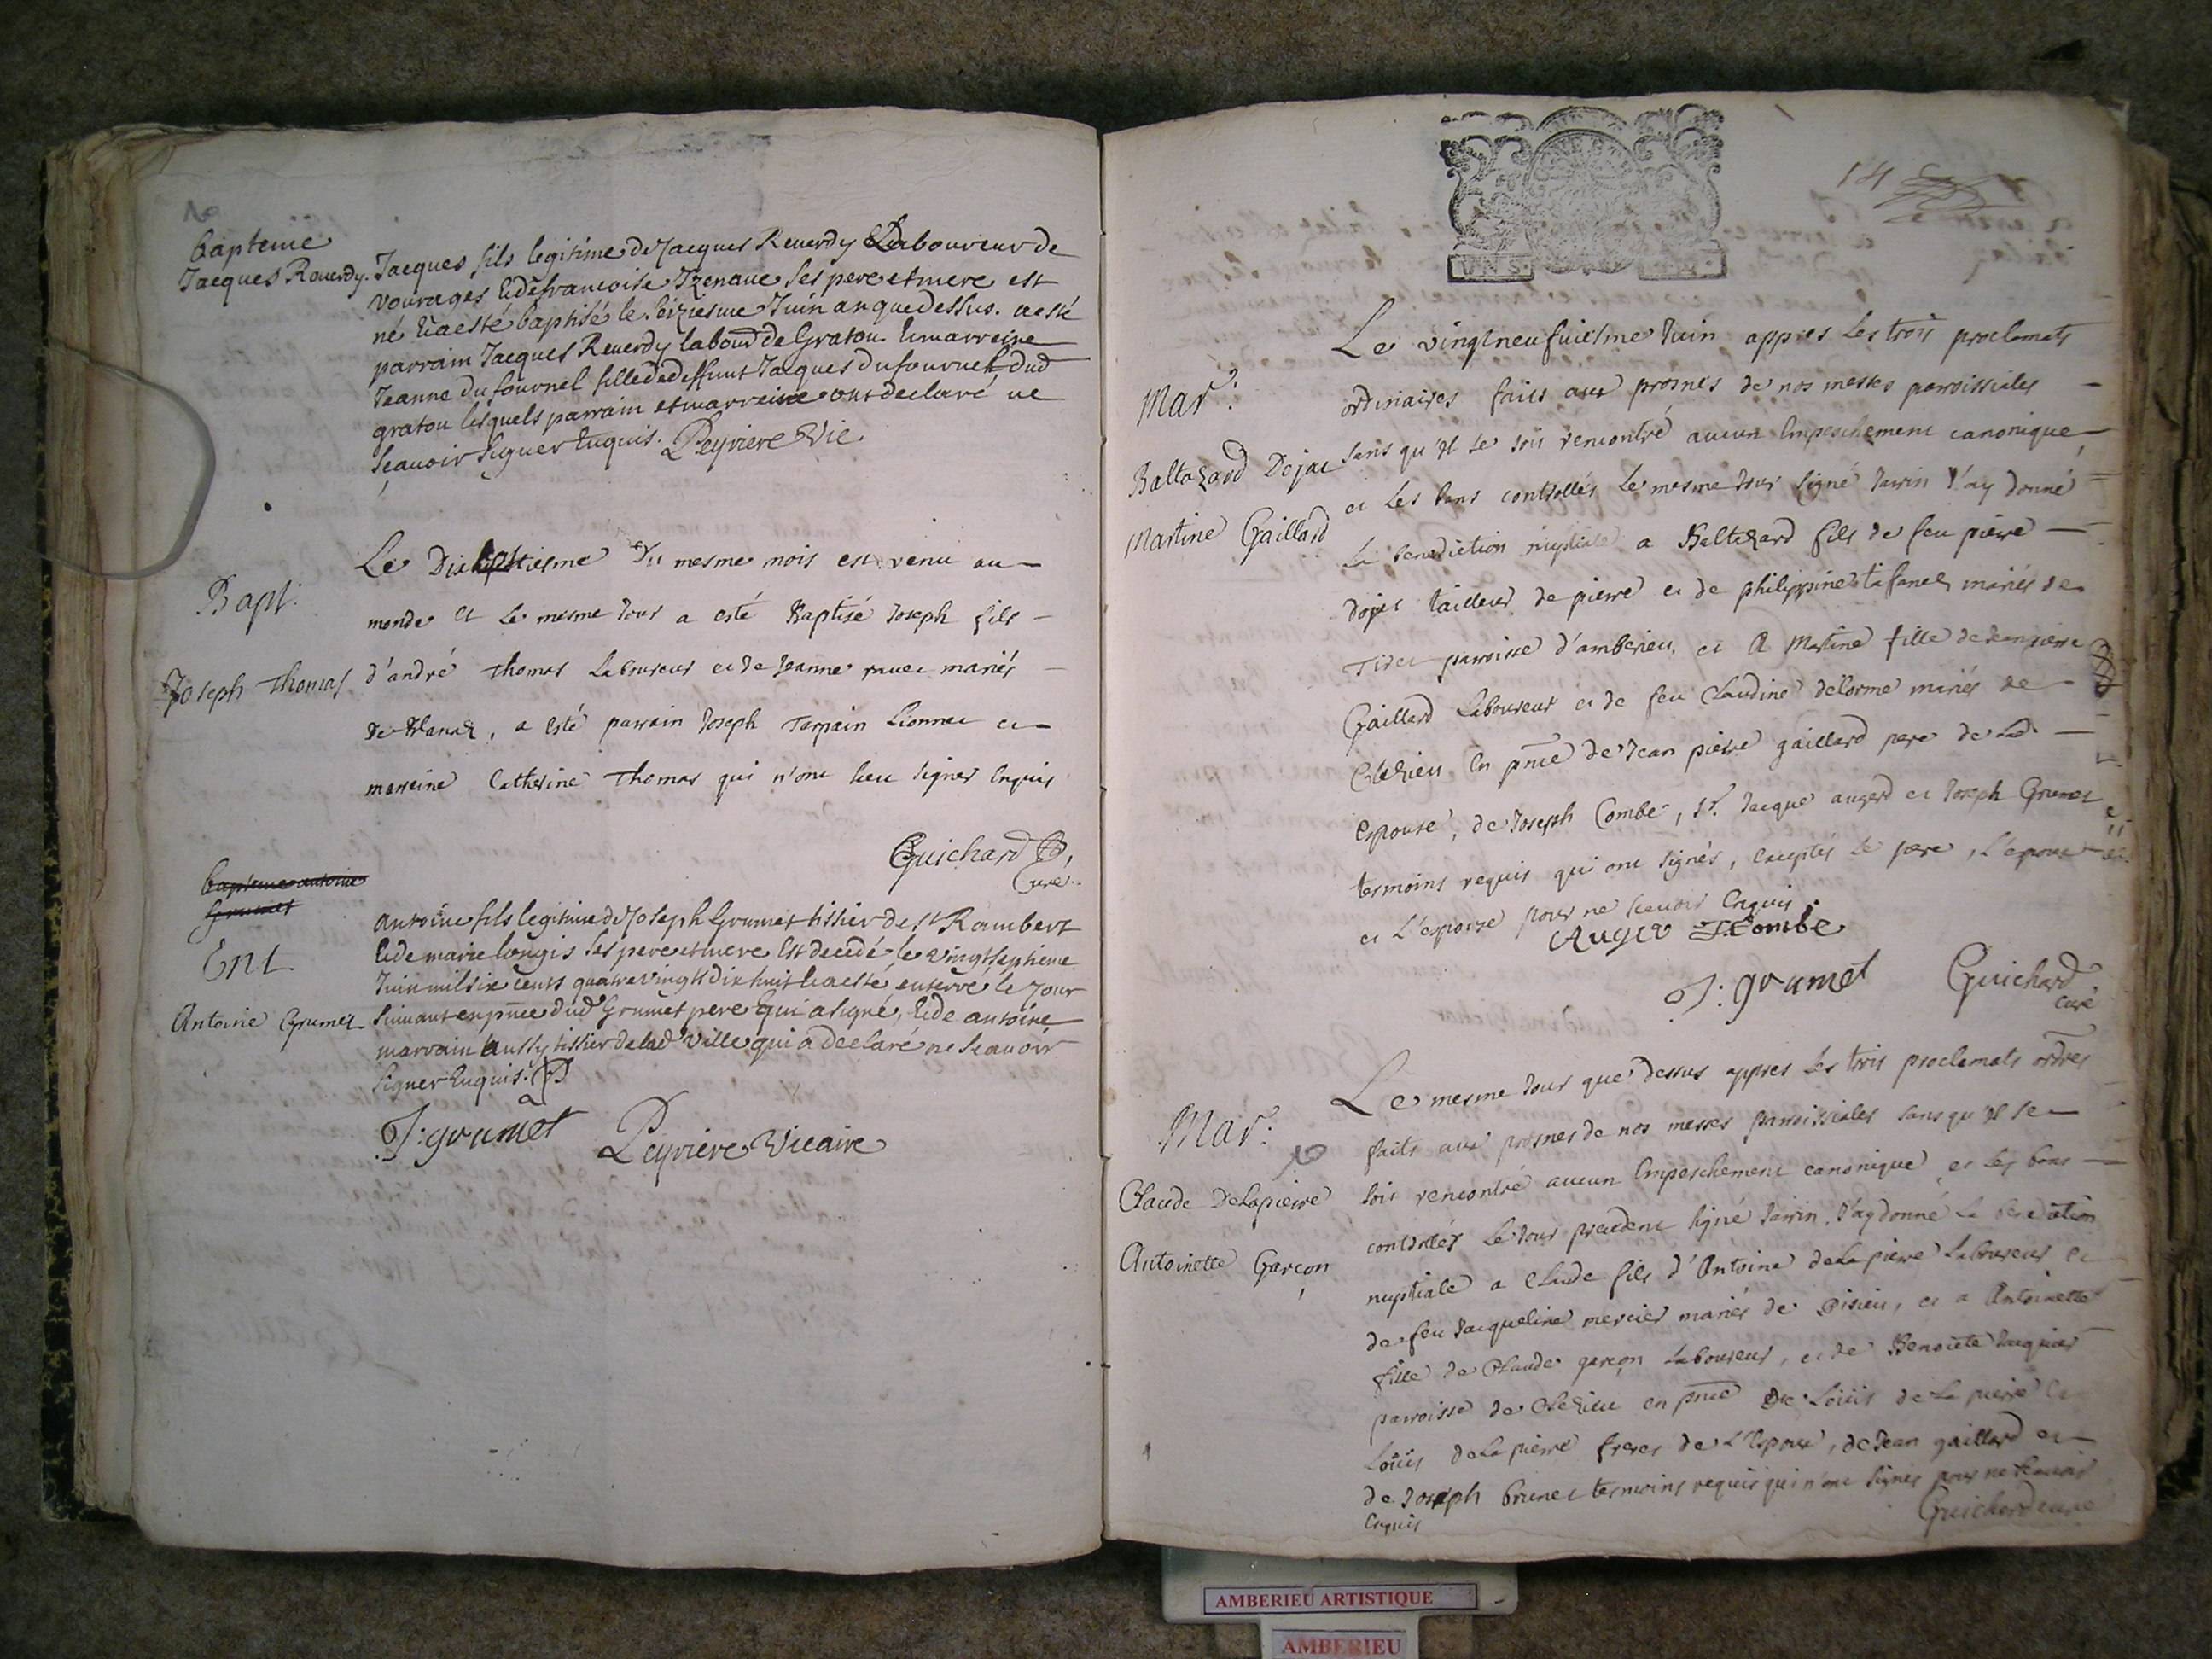 bapteme
Jacques Reuerdy.
Jacques fils legitime de Jacques Reuerdy Laboureur de
vourages & de francoise Tzenaue ses pere et mere est
né & a esté baptisé le seiziesme Juin an que dessus. a esté
parrain Jacques Reuerdy labour de Graton & marreine
Jeanne du fournel fille de deffunt Jacques du fournel dud
graton lesquels parrain et marreine ont declaré ne
scauoir signer enquis. Peyriere Vic
Bapt.
Joseph Thomas
Le Dixhuictiesme Du mesme mois est venu au
monde et Le mesme Jour a esté Baptisé Joseph fils
d'andré Thomas Laboureur et de Jeanne mariés
de , a Esté parrain Joseph Tarpain Lionnet et
marreine Catherine Thomas qui n'ont sceu signer Enquis
Guichard
Curé
bapteme antoine
Grumet
Ent.
Antoine Grumet
Antoine fils legitime de Joseph Grumet tissier de st Rambert
& de marie longis ses pere et mere Est decedé le vingt septieme
Juin mil six cents quatre vingts dix huit & a esté enterré le Jour
suiuant en pnce dud Grumet pere qui a signé, & de antoine
marrain aussy tissier de lad ville qui a declaré ne scauoir
signer enquis.
J: grumet Peyriere Vicaire
UNS
141
Mar:
Baltazard Dojat
Martine Gaillard
Le vingtneufuiesme Juin appres Les trois proclamats
ordinaires faits aux prosnes de nos messes parroissiales
sans qu'Il se soit rencontré aucun Empeschement canonique
et Les bans controllés Le mesme Jour signé Jarrin J'ay donné
La benediction nuptiale a Baltazard fils de feu pierre
dojat tailleur de pierre et de philippine tafanel mariés de
Tiret parroisse d'amberieu, et A Martine fille de Jean pierre
Gaillard Laboureur et de feu Claudine delorme mariés de
En pnce de Jean pierre gaillard pere de Lad.
Espouse, de Joseph Combe, Sr. Jacque augerd et Joseph Grumet
tesmoins requis qui ont signés, Exceptés Le pere, L'epoux
et L'espouse pour ne scauoir Enquis
Auger J Combe
J: grumet Guichard
curé
Mar:
Claude DeLapierre
Antoinette Garçon
Le mesme Jour que dessus appres Les trois proclamats ordres
faits aux prosnes de nos messes parroissiales sans qu'Il se
soit rencontré aucun Empeschement canonique et Les bans
controllés Le Jour precedent signé Jarrin, J'ay donné La benediction
nuptiale a Claude fils d'Antoine deLapierre Laboureur et
de feu Jacqueline mercier mariés de , et a Antoinette
fille de Claude garçon Laboureur, et de Benoite Jacquier
parroisse de en pnce De Loüis de La pierre et
Loüis deLa pierre freres de L'Espoux, de Jean gaillard et
de Joseph brunet tesmoins requis qui n'ont signés pour ne scauoir
Enquis
Guichard curé
AMBERIEU ARTISTIQUE
AMBERIEU